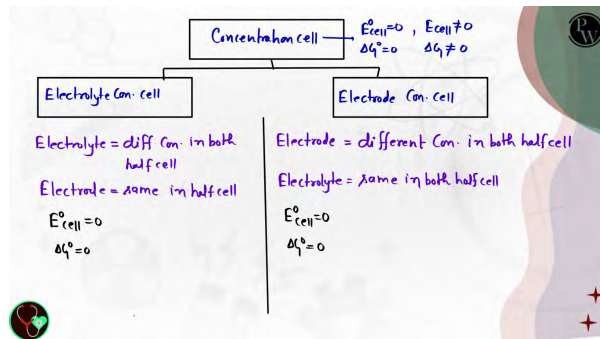 Concentration cell → E°cell=0 , Ecell≠0
ΔG°=0 ΔG≠0
PW
Electrolyte Con. cell
Electrode Con. cell
Electrolyte = diff Con. in both
half cell
Electrode = same in half cell
E°cell=0
ΔG°=0
Electrode = different Con. in both half cell
Electrolyte = same in both half cell
E°cell=0
ΔG°=0